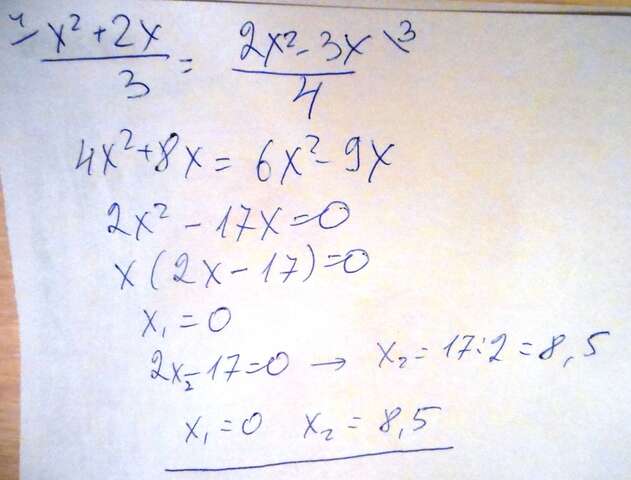 4/ (x²+2x)/3 = (2x²-3x)/4 \3
4x²+8x = 6x²-9x
2x² - 17x = 0
x(2x-17)=0
x₁ = 0
2x₂-17=0 → x₂ = 17:2 = 8,5
x₁=0 x₂ = 8,5